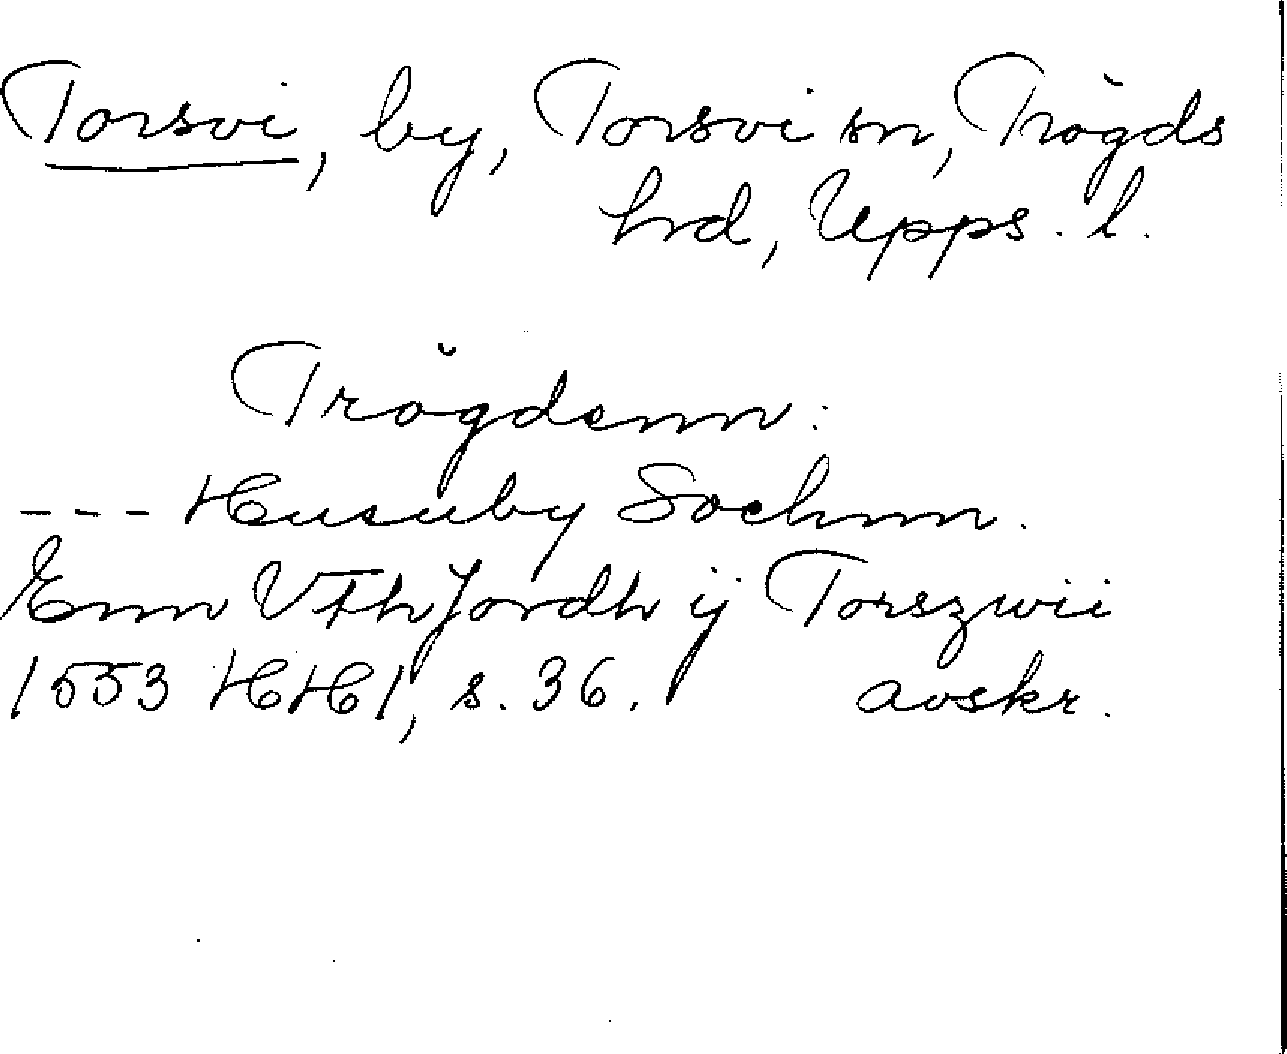 Torsvi, by, Torsvi sn, Trögds
hrd, Upps. l.
Trögdenn:
--- Husuby Sochnn.
Enn VthJordh ij Torszwii
1553 HH1, s. 36. avskr.